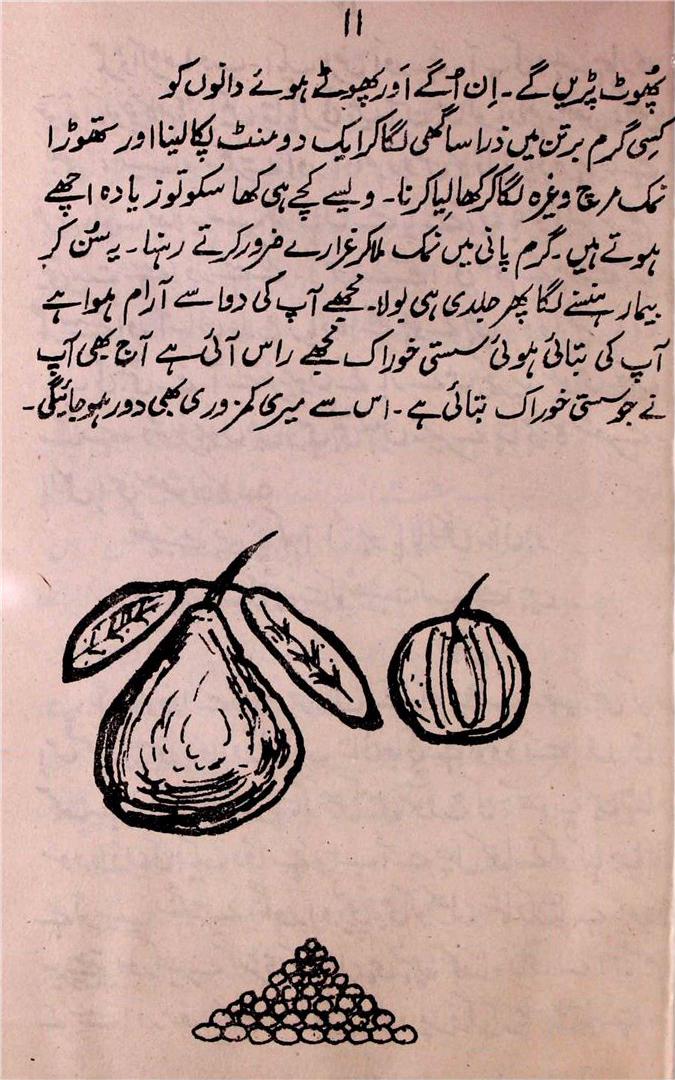 ۱۱
پُھوٹ پڑیں گے۔ اِن اُگے اَور پھوٹے ہوئے دانوں کو
کِسی گرم برتن میں ذرا سا گھی لگا کر ایک دو منٹ پکا لینا اور تھوڑا
نمک مرچ وغیرہ لگا کر کھا لیا کرنا۔ ویسے کچے ہی کھا سکو تو زیادہ اچھے
ہوتے ہیں۔ گرم پانی میں نمک ملا کر غرارے ضرور کرتے رہنا۔ یہ سُن کر
بیمار ہنسنے لگا پھر جلدی ہی بولا۔ مجھے آپ کی دوا سے آرام ہوا ہے
آپ کی بتائی ہوئی سستی خوراک مجھے راس آئی ہے آج بھی آپ
نے جو سستی خوراک بتائی ہے۔ اس سے میری کمزوری بھی دور ہو جائیگی۔